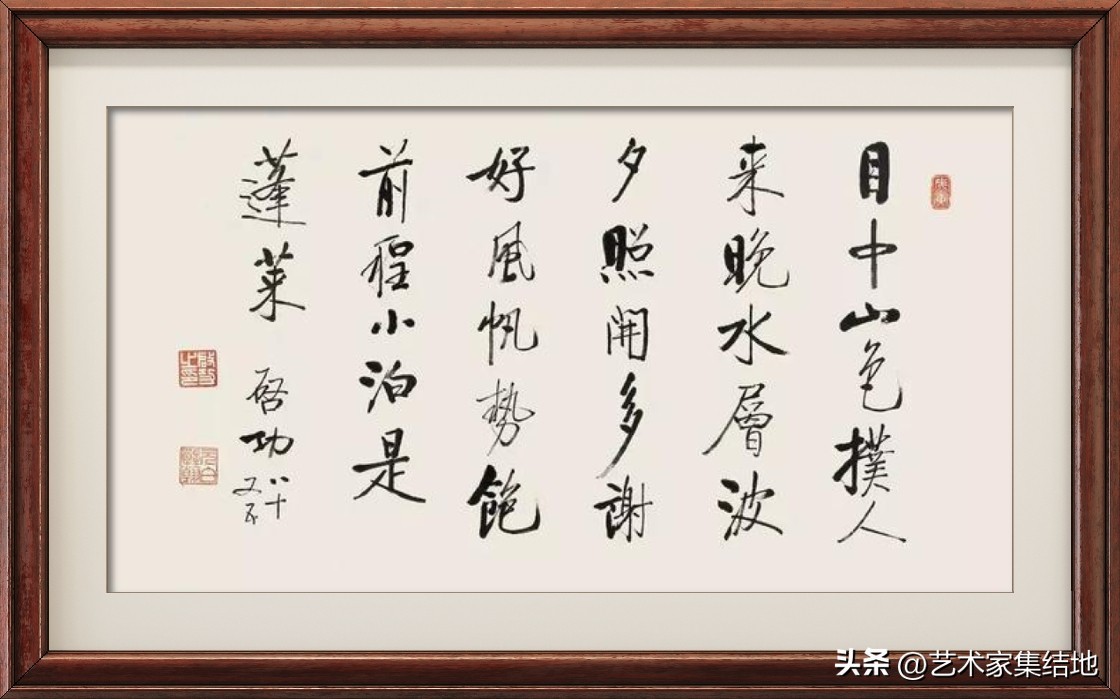 目中山色撲人
来晚水層波
夕照開多謝
好風帆勢飽
前程小泊是
蓬莱 啓功 八十又五
頭条 @艺术家集结地